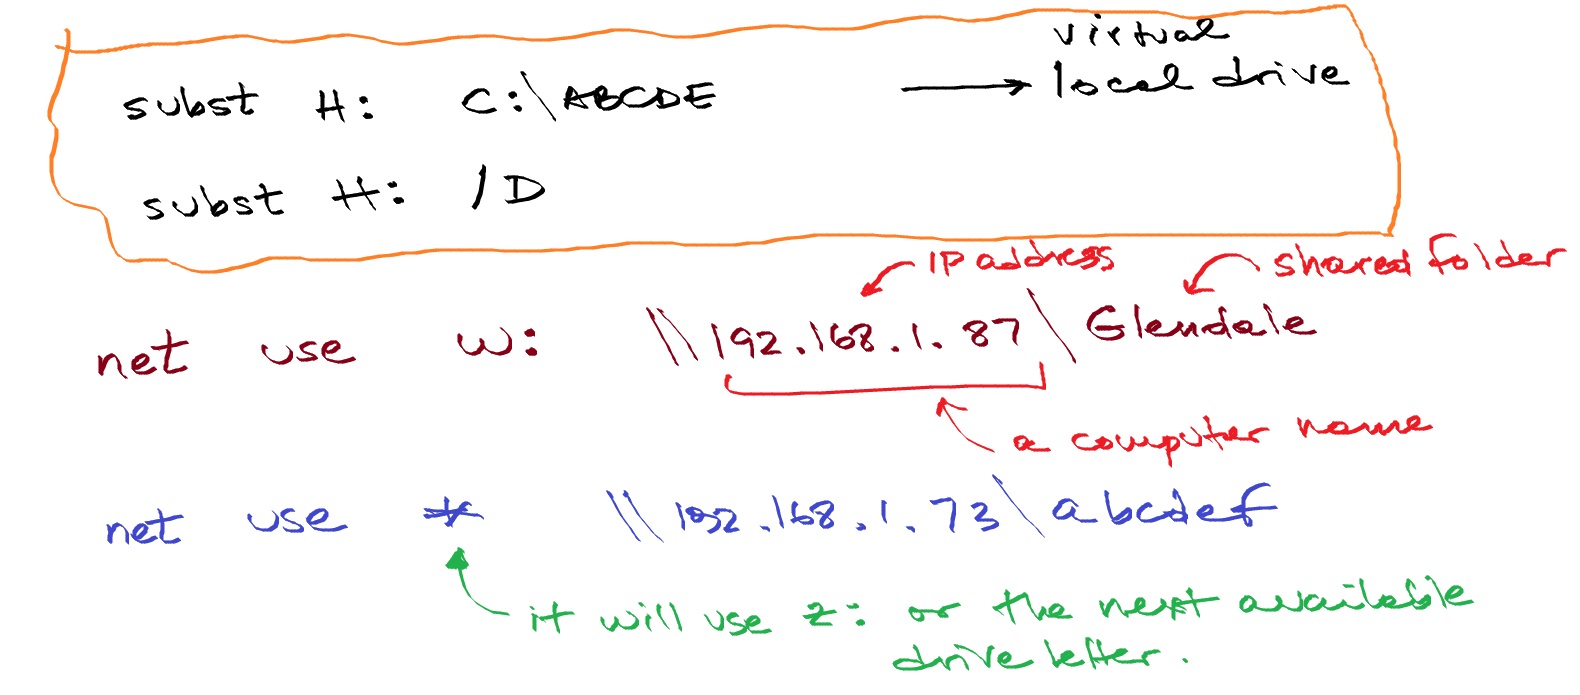 virtual
subst H: C:\ABCDE → local drive
subst H: /D
IP address shared folder
net use w: \\192.168.1.87\Glendale
a computer name
net use * \\192.168.1.73\abcdef
it will use z: or the next available
drive letter.